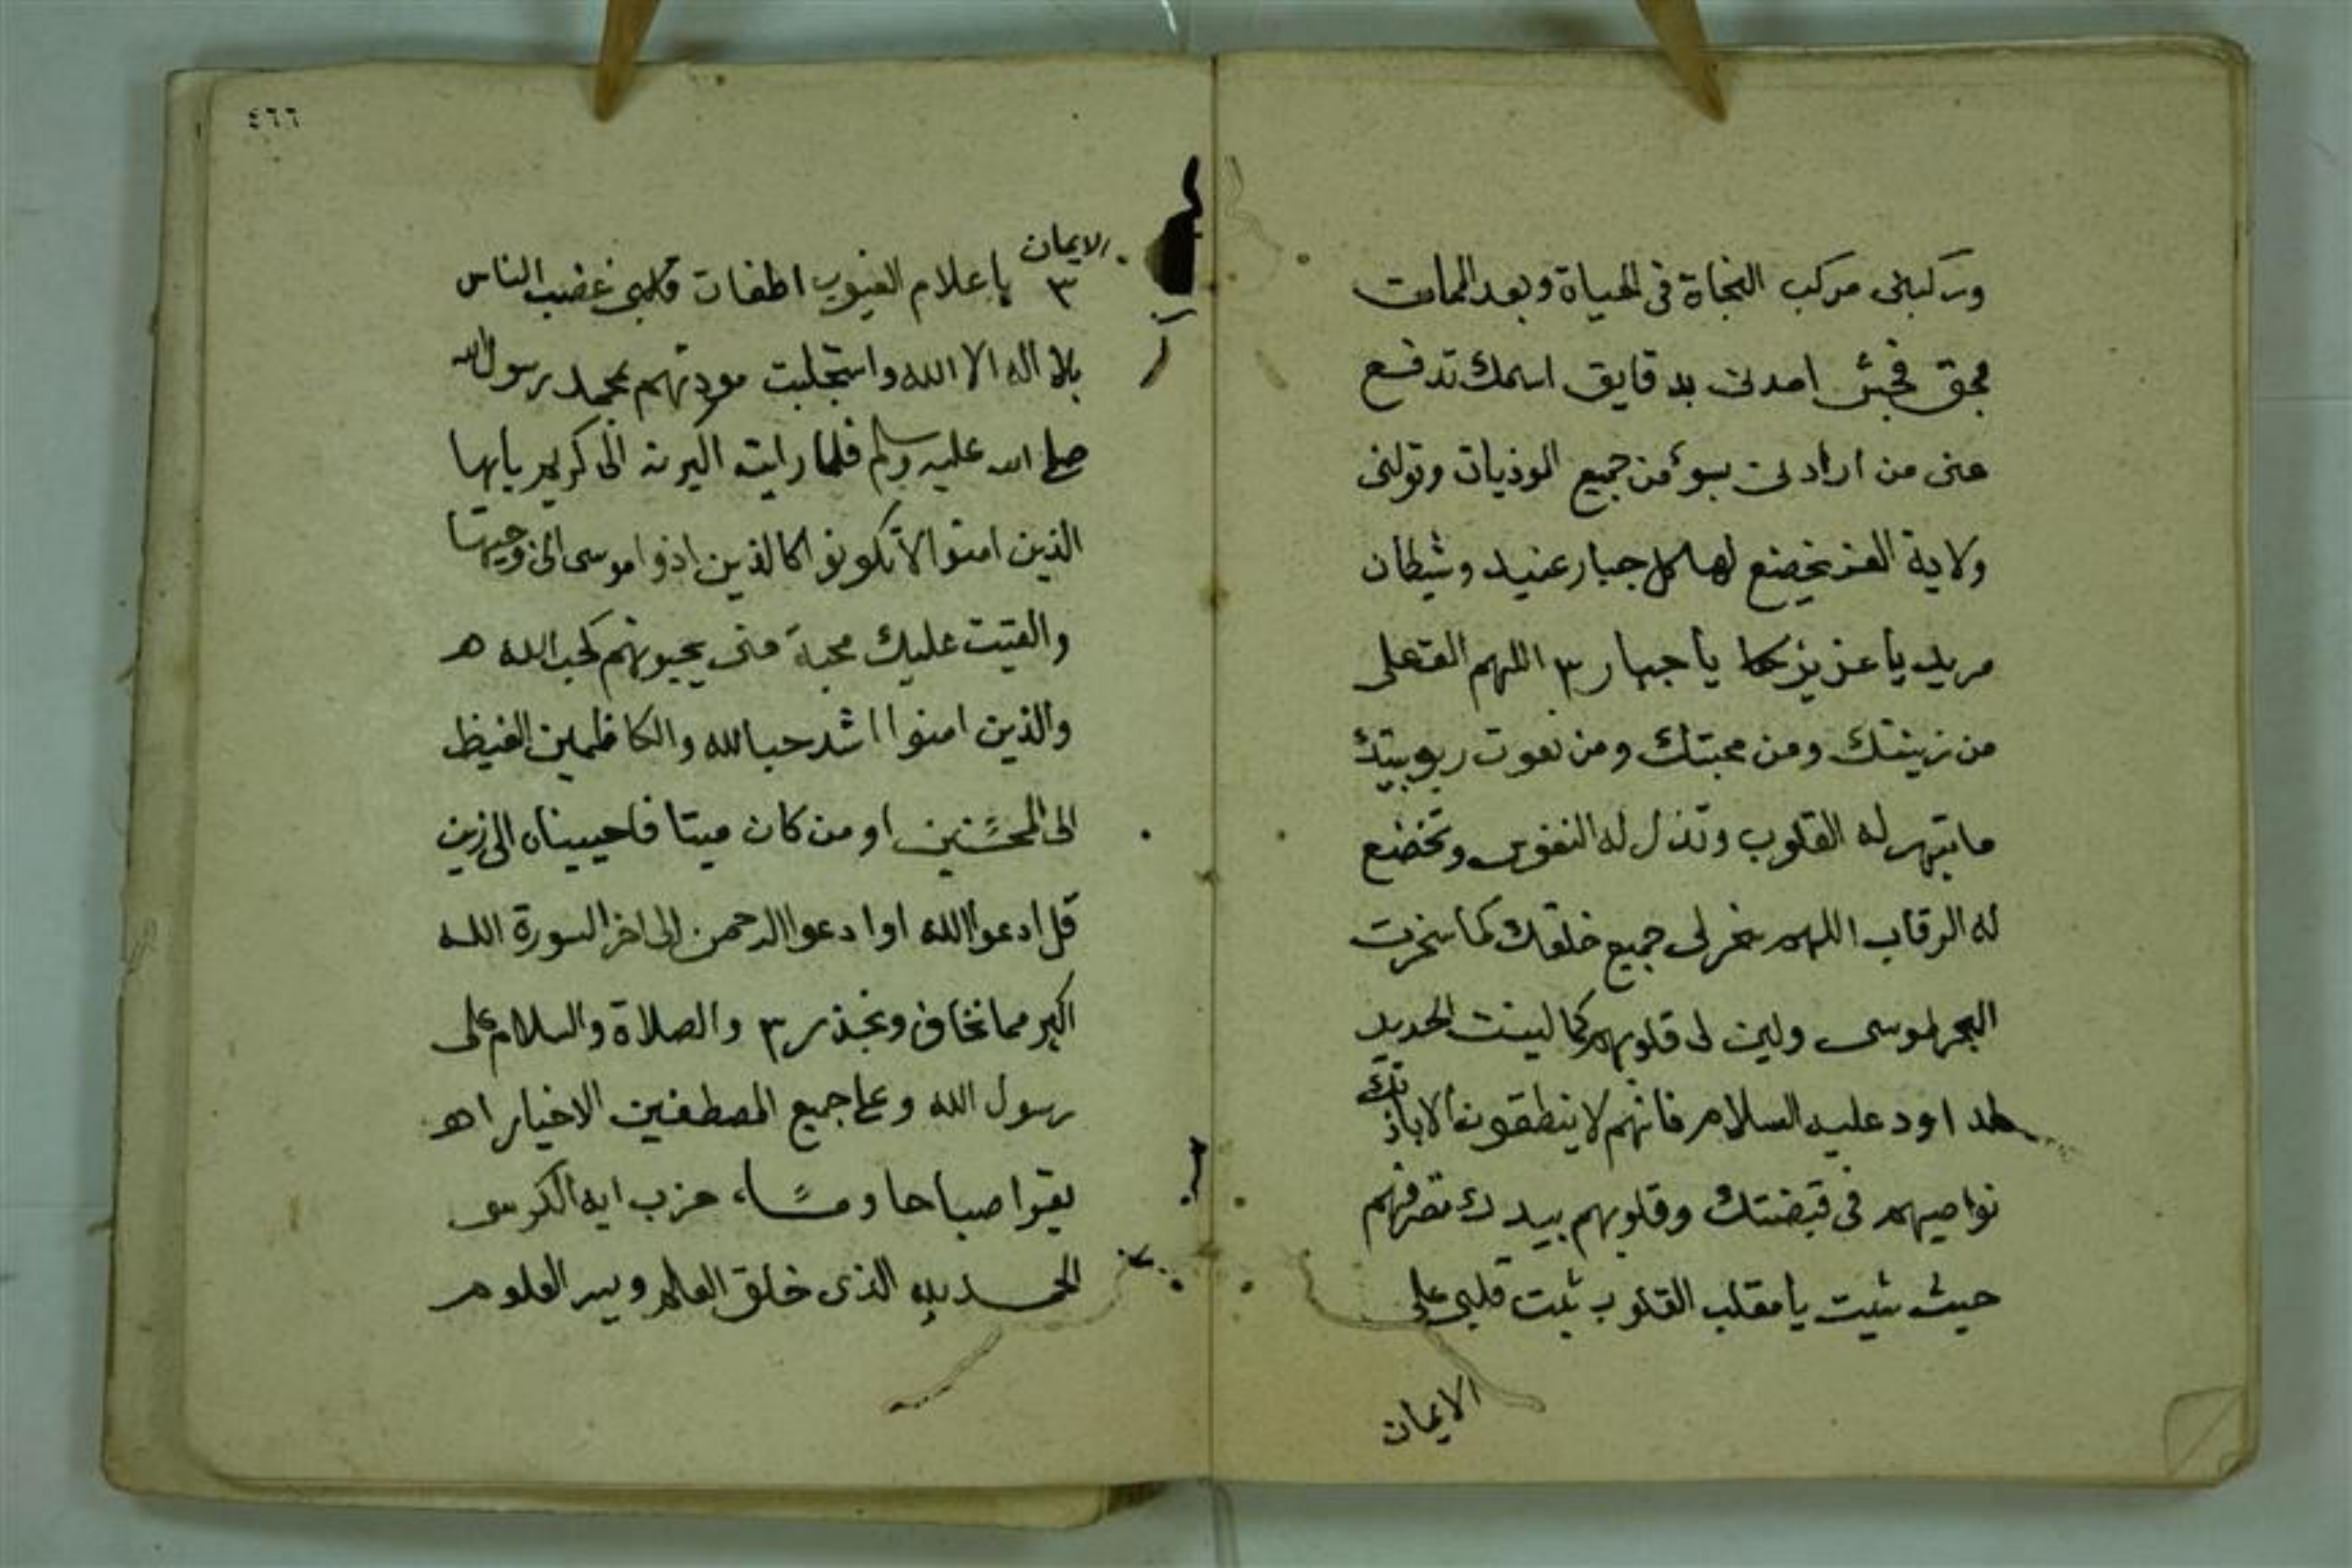 وتركبنى مركب النجاة فى الحياة وبعد الممات
بحق فجش امدنى بدقايق اسمك تدفع
عنى من ارادنى بسوء من جميع الموذيات وتولنى
ولاية العز يخضع لها كل جبار عنيد وشيطان
مريد يا عزيز يا جبار ٣ اللهم الق على
من زينتك ومن محبتك ومن نعوت ربوبيتك
ما تبهر له القلوب وتذل له النفوس وتخضع
له الرقاب اللهم سخر لى جميع خلقك كما سخرت
البحر لموسى ولين لى قلوبهم كما لينت الحديد
لداود عليه السلام فانهم لا ينطقون الا باذنك
نواصيهم فى قبضتك وقلوبهم بيدك تصرفهم
حيث شيت يا مقلب القلوب ثبت قلبى على
الايمان
٤٦٦
الايمان
٣ يا علام الغيوب اطفات غضب الناس
بلا اله الا الله واستجلبت مودتهم بمحمد رسول الله
صلى الله عليه وسلم فلما راينه اكبرنه الى كريم يايها
الذين امنوا لا تكونوا كالذين اذوا موسى الى وجيها
والقيت عليك محبة منى يحبونهم كحب الله ه
والذين امنوا اشد حبا لله والكاظمين الغيظ
الى المحسنين او من كان ميتا فاحييناه الى زين
قل ادعوا الله او ادعوا الرحمن الى اخر السورة الله
اكبر مما نخاف ونحذر ٣ والصلاة والسلام على
رسول الله وعلى جميع المصطفين الاخيار اه
يقرا صباحا ومساء حزب اية الكرسى
الحمد لله الذى خلق العالم ويسر العلوم